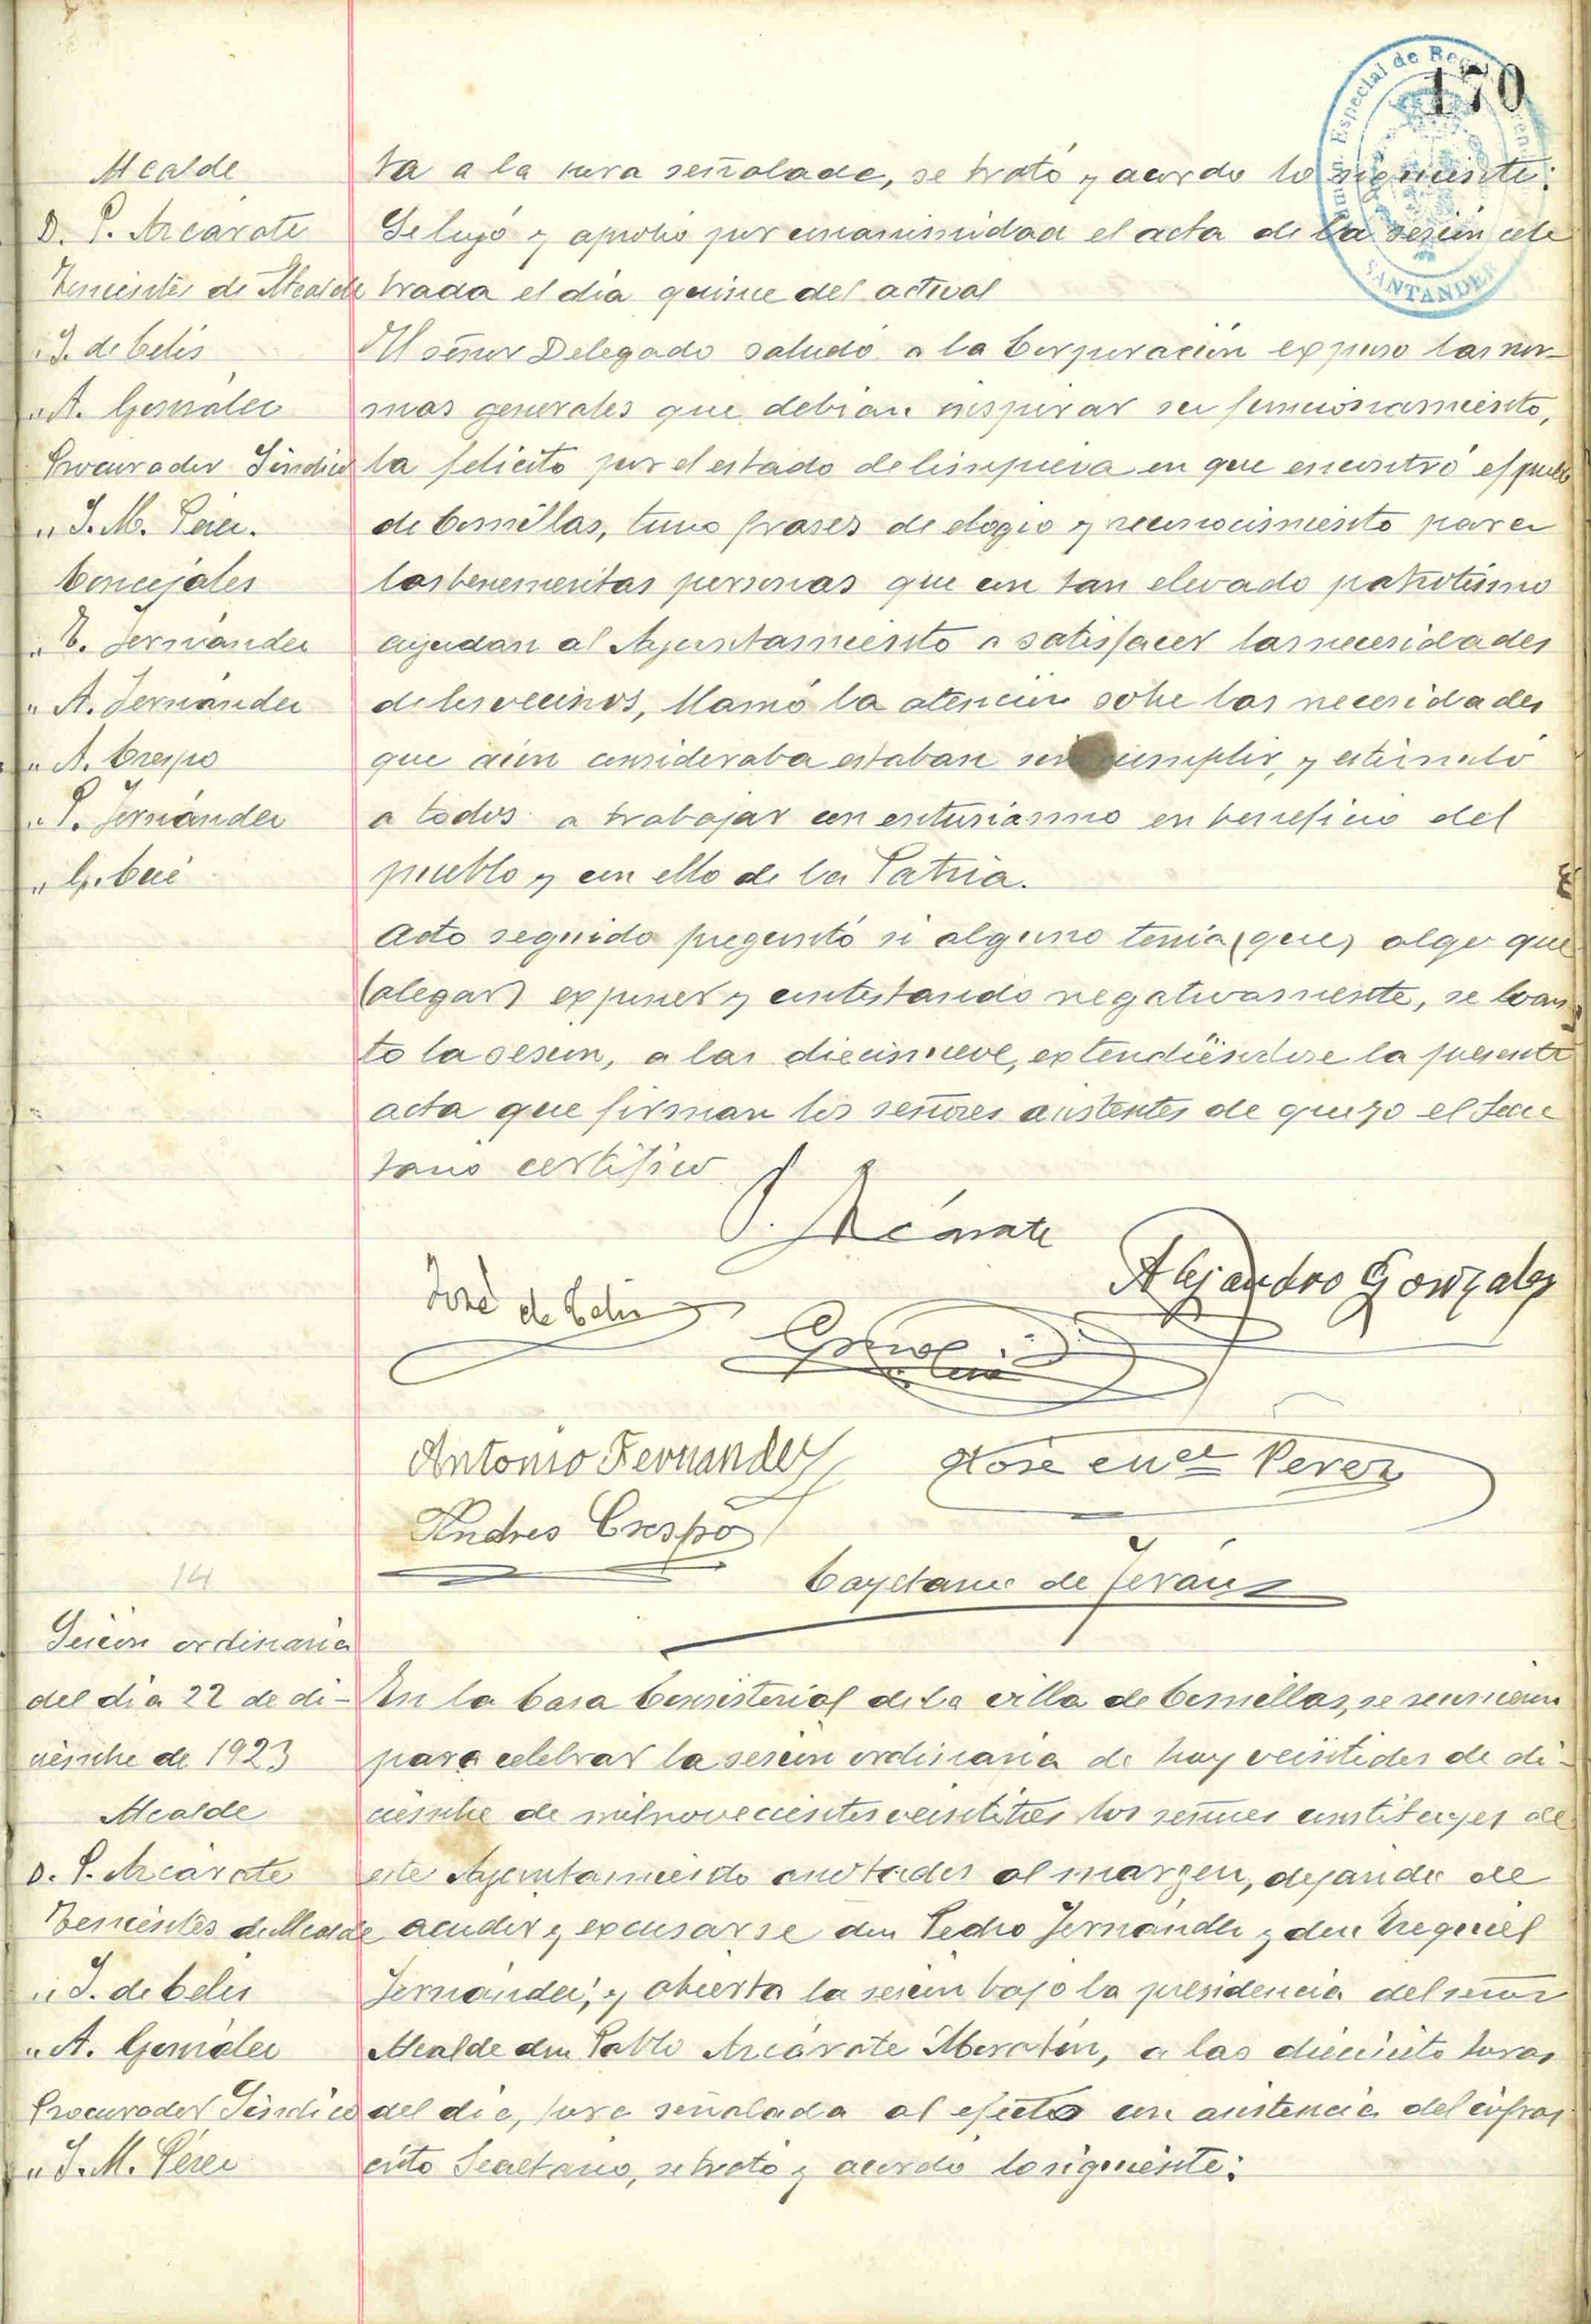 170
Admón. Especial de Rentas Arren
SANTANDER
Alcalde
D. P. Azcárate
Tenientes de Alcalde
" J. de Celis
" A. González
Procurador Síndico
" J. M. Pérez.
Concejales
" E. Fernández
" A. Fernández
" A. Crespo
" P. Fernández
" G. Cué
ta a la hora señalada, se trató y acordo lo siguiente:
Se leyó y aprobó por unanimidad el acta de la sesión cele
brada el día quince del actual
El señor Delegado saludó a la Corporación expuso las nor-
mas generales que debían inspirar su funcionamiento,
la felicito por el estado de limpieza en que encontró el pueblo
de Comillas, tuvo frases de elogio y reconocimiento para
las benemeritas personas que con tan elevado patriotismo
ayudan al Ayuntamiento a satisfacer las necesidades
de los vecinos, llamó la atención sobre las necesidades
que aún consideraba estaban sin cumplir, y estimuló
a todos a trabajar con entusiasmo en beneficio del
pueblo y con ello de la Patria.
Acto seguido preguntó si alguno tenia (que) algo que
(alegar) exponer y contestando negativamente, se levan
to la sesión, a las diecinueve, extendiéndose la presente
acta que firman los señores asistentes de que yo el Secre
tario certifico
P. Azcárate
José de Celis
Alejandro Gonzalez
Antonio Fernandez
José Mel Perez
Andres Crespo
Cayetano de Terán
14
Sesión ordinaria
del día 22 de di-
ciembre de 1923
Alcalde
D. P. Azcárate
Tenientes de Alcalde
" J. de Celis
" A. González
Procurador Síndico
" J. M. Pérez
En la Casa Consistorial de la villa de Comillas, se reunieron
para celebrar la sesión ordinaria de hoy veintidos de di-
ciembre de mil novecientos veintitrés los señores constituyes de
este Ayuntamiento anotados al margen, dejando de
acudir y excusarse don Pedro Fernández y don Ezequiel
Fernández; y abierta la sesión bajo la presidencia del señor
Alcalde don Pablo Azcárate Moratín, a las dieciocho horas
del día, hora señalada al efecto con asistencia del infras
crito Secretario, se trató y acordó lo siguiente: